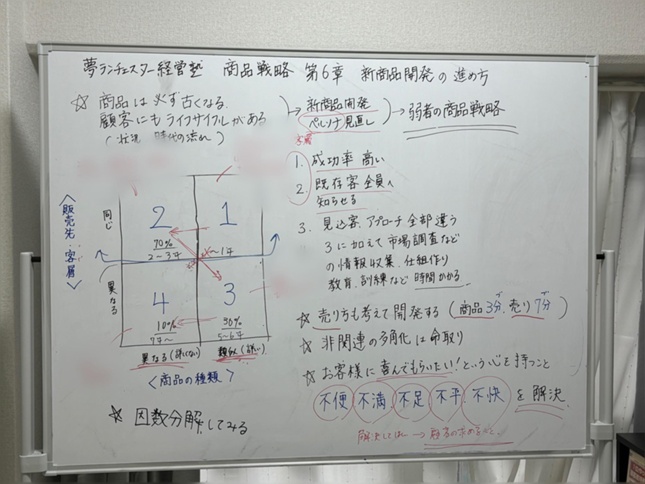 夢ランチェスター経営塾 商品戦略 第6章 新商品開発の進め方
☆ 商品は必ず古くなる.
顧客にもライフサイクルがある
時代の流れ)
→ 新商品開発
ペルソナ見直し
→ 弱者の商品戦略
1. 成功率 高い
2. 既存客全員へ
知らせる
3. 見込客、アプローチ全部違う
3に加えて市場調査など
の情報収集、仕組作り
教育、訓練など時間かかる.
<販売先:客層>
同じ
異なる
2
70%
2~3年
1
~1年
4
10%
7年~
3
30%
5~6年
異なる(詳しくない)
類似(詳しい)
<商品の種類>
☆ 因数分解してみる
☆ 売り方も考えて開発する(商品3分、売り7分)
☆ 非関連の多角化は命取り
☆ お客様に喜んでもらいたい!という心を持つこと
不便 不満 不足 不平 不快 を解決.